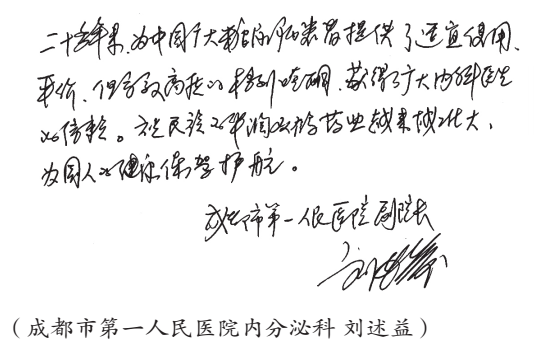 二十多年来,为中国广大糖尿病患者提供了适宜使用、
平价、但等效高质的格列喹酮,获得了广大内科医生
的信赖。祝民族的华润双鹤药业越来越壮大,
为国人的健康保驾护航。
成都市第一人民医院副院长
刘述益
(成都市第一人民医院内分泌科 刘述益)